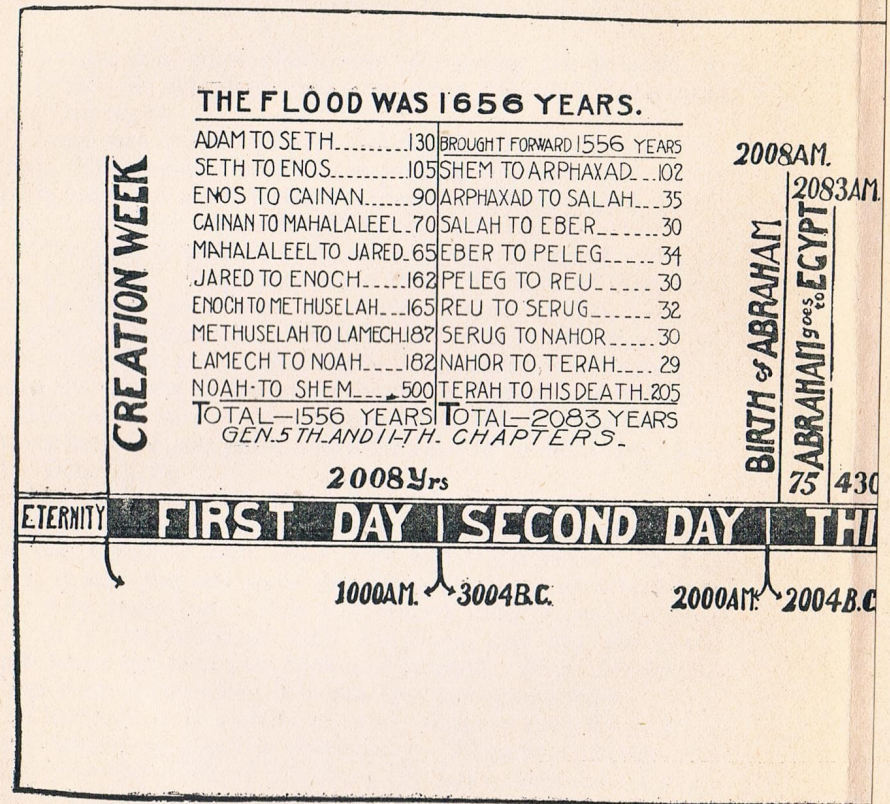 THE FLOOD WAS 1656 YEARS.
ADAM TO SETH.........130
SETH TO ENOS.......105
ENOS TO CAINAN......90
CAINAN TO MAHALALEEL.70
MAHALALEEL TO JARED.65
JARED TO ENOCH.....162
ENOCH TO METHUSELAH...165
METHUSELAH TO LAMECH.187
LAMECH TO NOAH.....182
NOAH-TO SHEM.....500
TOTAL—1556 YEARS
BROUGHT FORWARD 1556 YEARS
SHEM TO ARPHAXAD...102
ARPHAXAD TO SALAH...35
SALAH TO EBER......30
EBER TO PELEG.....34
PELEG TO REU.....30
REU TO SERUG......32
SERUG TO NAHOR.....30
NAHOR TO TERAH....29
TERAH TO HIS DEATH.205
TOTAL—2083 YEARS
GEN. 5TH. AND 11-TH. CHAPTERS.
CREATION WEEK
2008 Yrs
2008 AM.
BIRTH of ABRAHAM
2083 AM.
ABRAHAM goes to EGYPT
75
430
ETERNITY
FIRST DAY
SECOND DAY
THI
1000 AM.
3004 B.C.
2000 AM.
2004 B.C